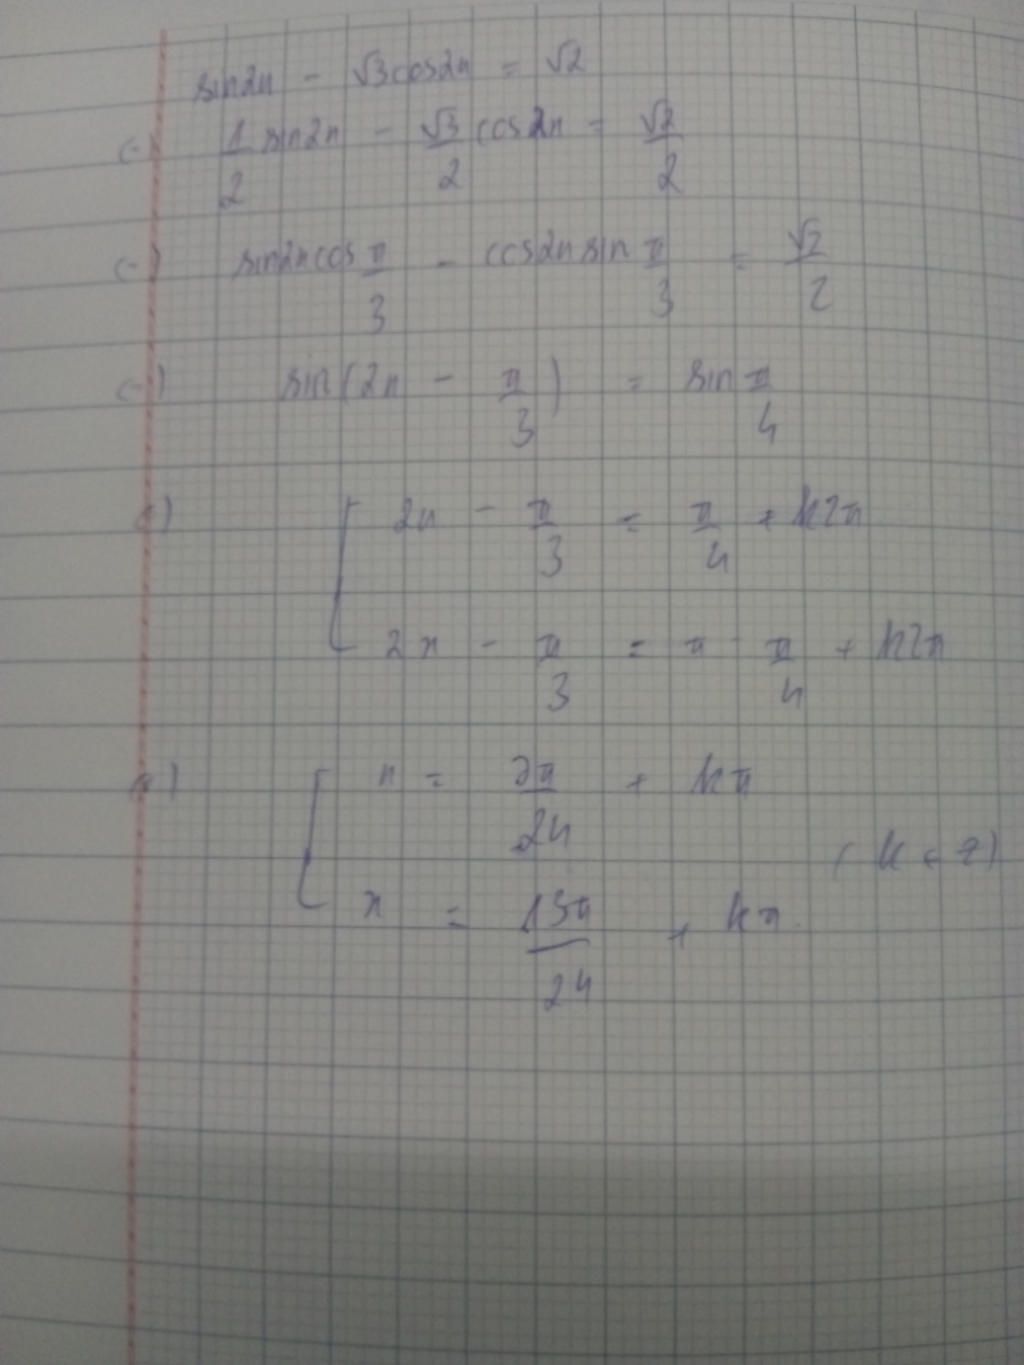 sin2x - √3cos2x = √2
(=) 1/2 sin2x - √3/2 cos2x = √2/2
(=) sin2xcos π/3 - cos2xsin π/3 = √2/2
(=) sin(2x - π/3) = sin π/4
(=) [ 2x - π/3 = π/4 + k2π
2x - π/3 = π - π/4 + k2π
(=) [ x = 7π/24 + kπ
(k ∈ Z)
x = 13π/24 + kπ